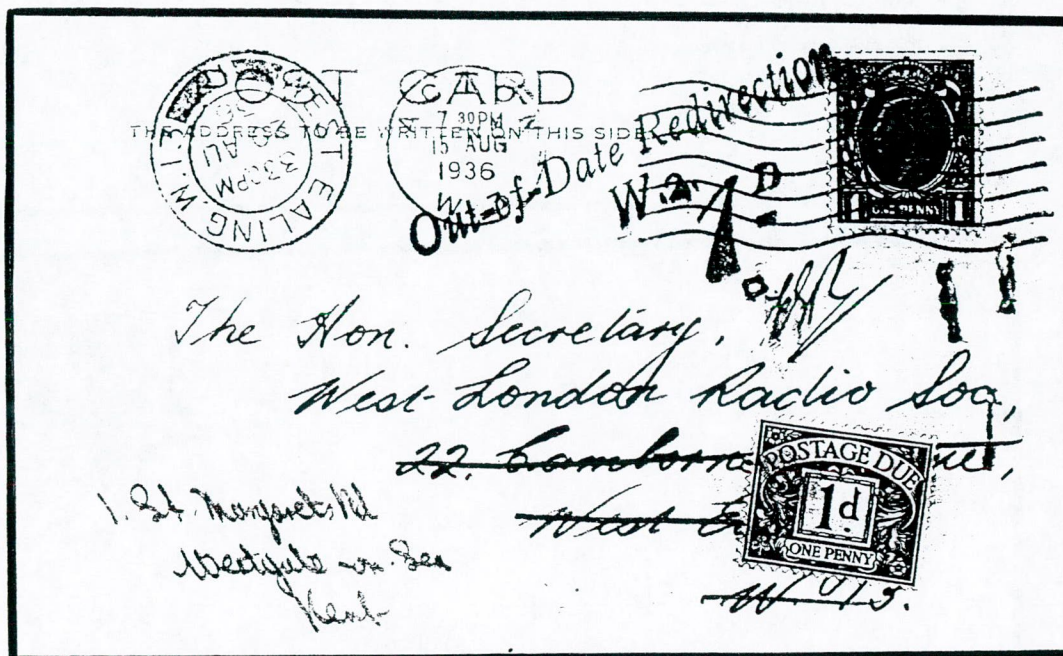 POST CARD
THE ADDRESS TO BE WRITTEN ON THIS SIDE
WEST EALING W.13
3 30PM
20 AU
36
7 30PM
15 AUG
1936
W.
Out-of-Date Redirection
W.2.
1 D
ONE PENNY
1 1
The Hon. Secretary,
West London Radio Soc,
22, Camborne
West
W 13.
POSTAGE DUE
1d
ONE PENNY
1. St. Margarets Rd
Westgate-on-Sea
Kent